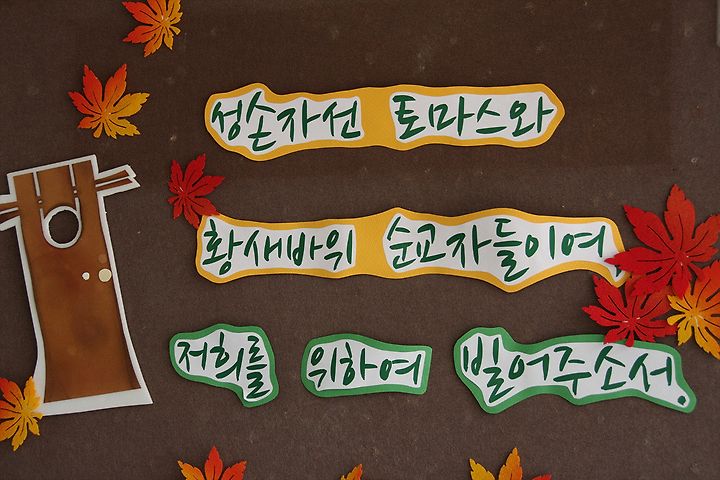 성손자선 토마스와
황새바위 순교자들이여
저희를 위하여 빌어주소서.